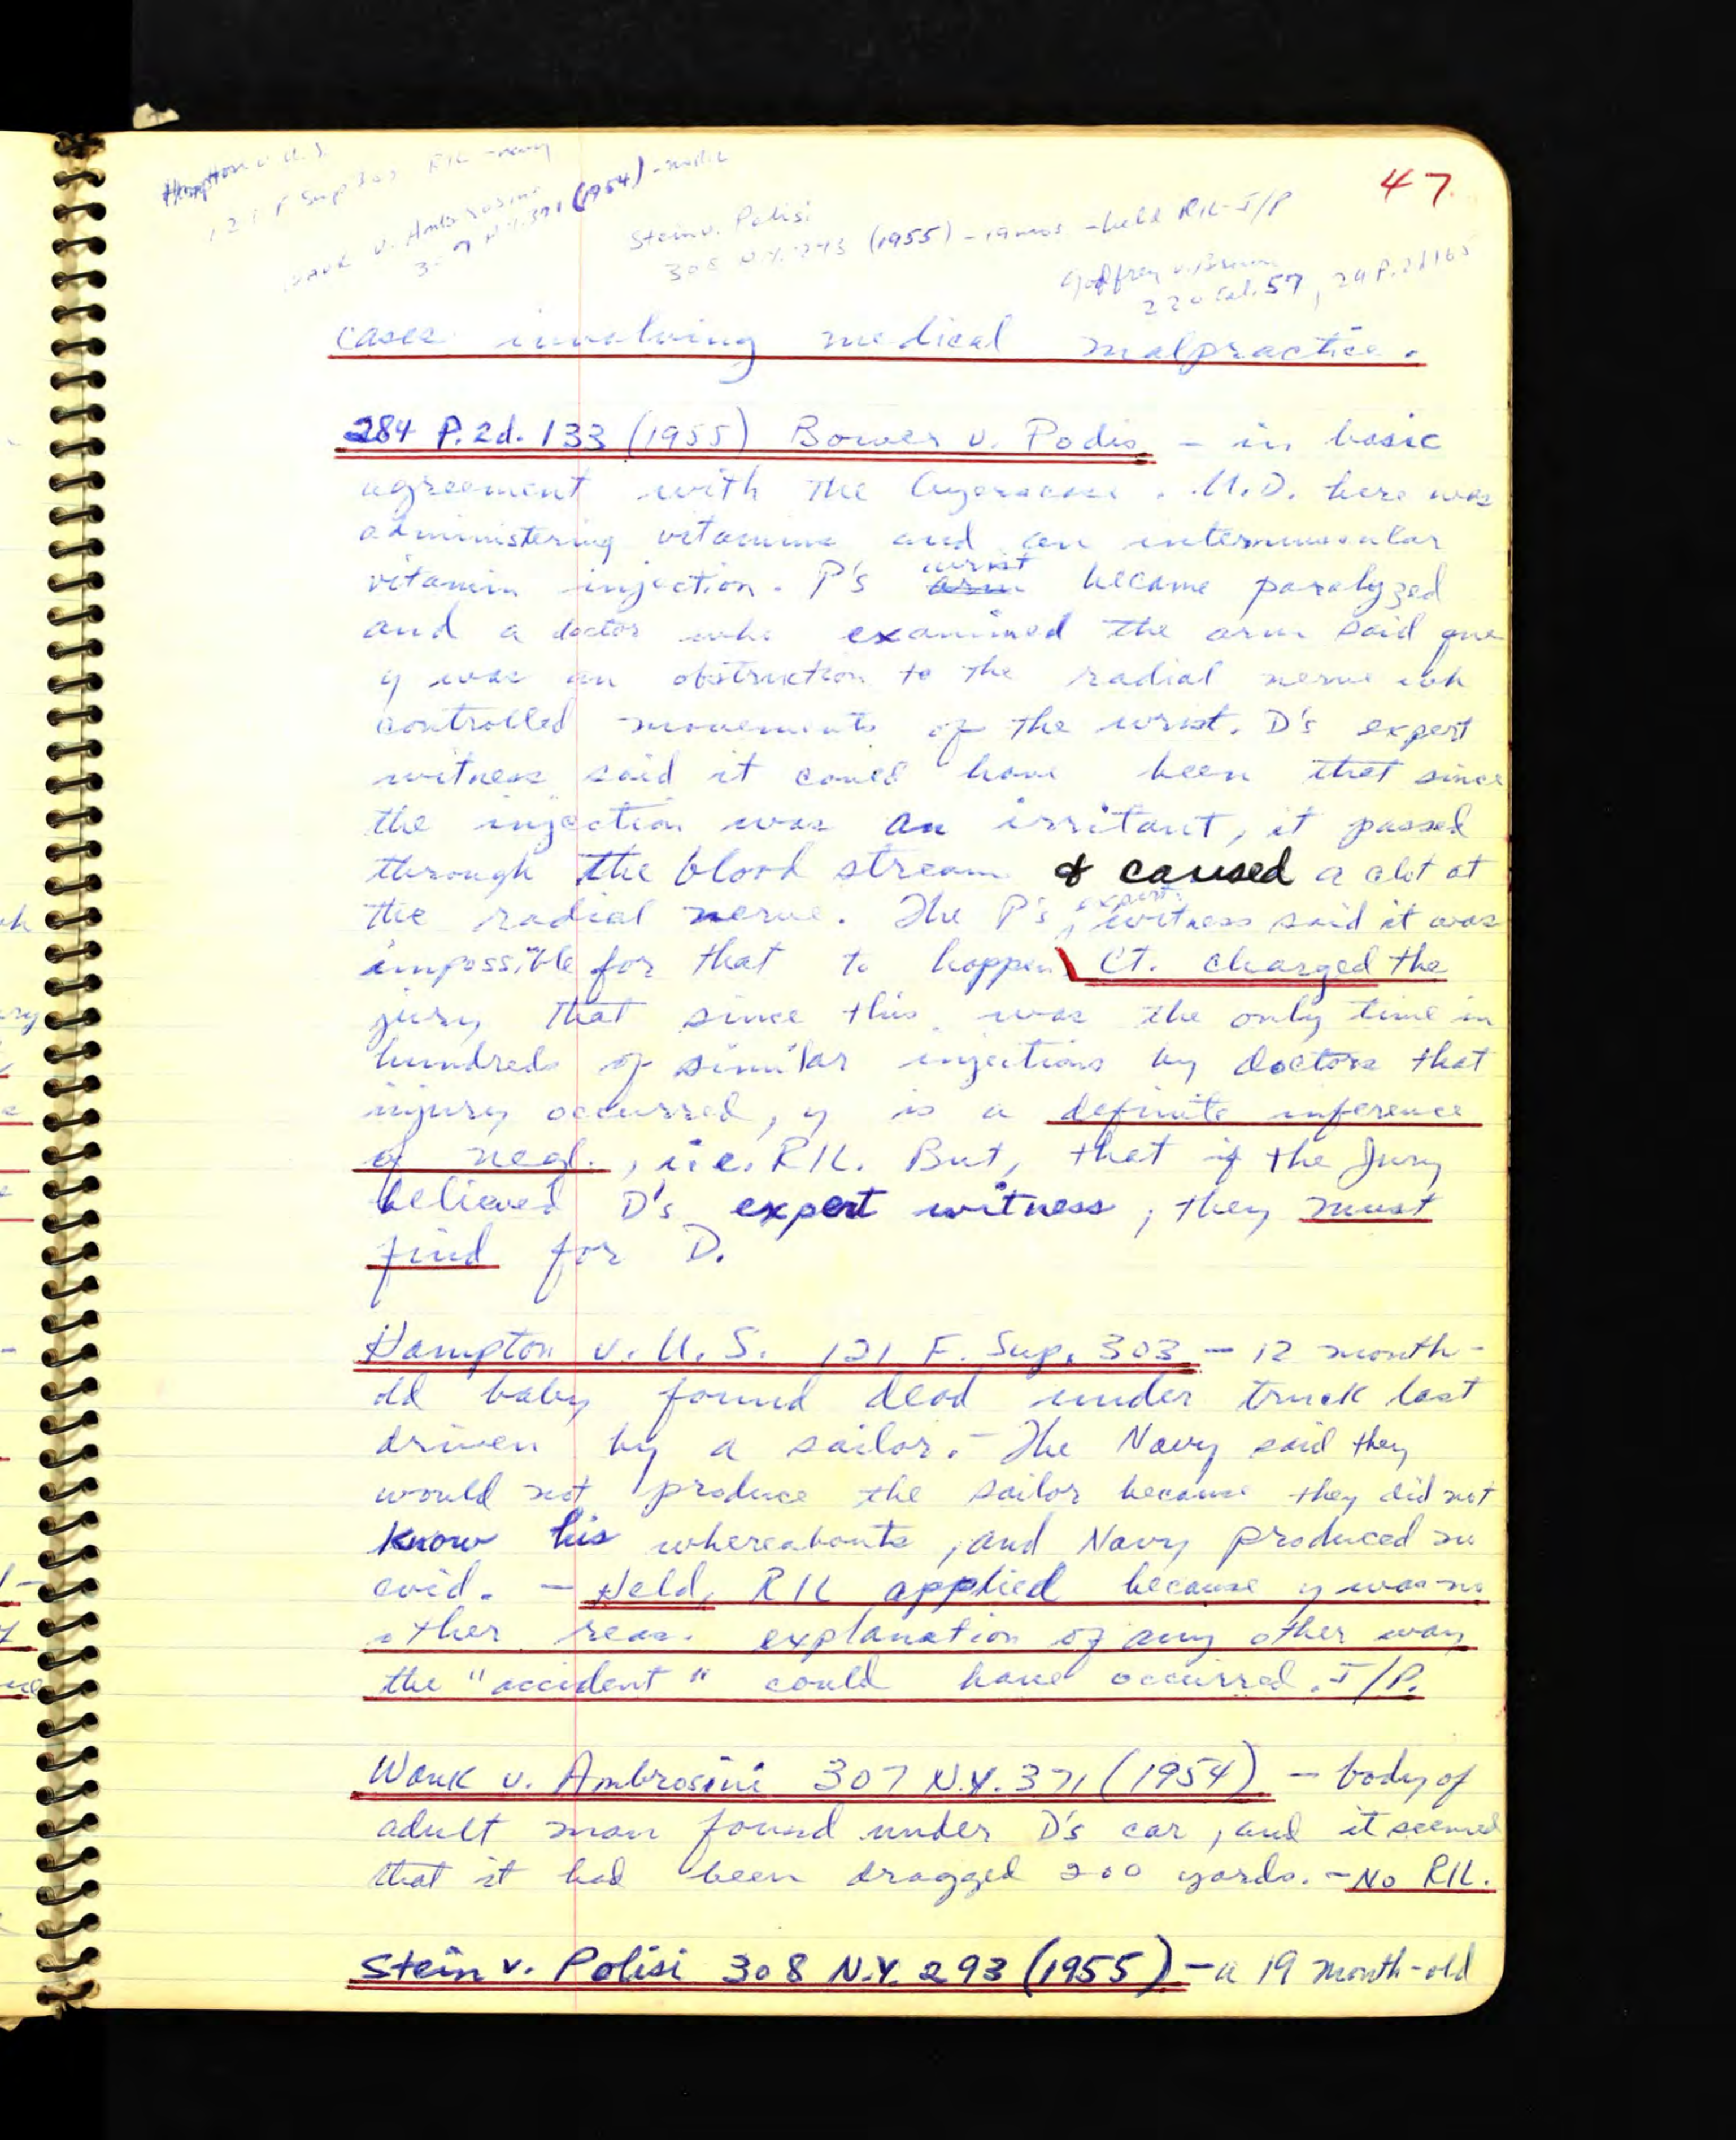 47.
Hampton v. U.S.
121 F Sup 303 RIL - navy
v. Ambrosini
307 N.Y. 371 (1954)
Stein v. Polisi
308 N.Y. 293 (1955) - 19 mos - held RIL - J/P
Godfrey v. Brown
220 Cal. 57, 29 P.2d 165
cases involving medical malpractice.
284 P.2d. 133 (1955) Bower v. Podis - in basic
agreement with the . M.D. here was
administering vitamins and an intermuscular
vitamin injection. P's arm wrist became paralyzed
and a doctor who examined the arm said
y was an obstruction to the radial nerve wh
controlled movements of the wrist. D's expert
witness said it could have been that since
the injection was an irritant, it passed
through the blood stream & caused a clot at
the radial nerve. The P's expert witness said it was
impossible for that to happen Ct. charged the
jury that since this was the only time in
hundreds of similar injections by doctors that
injury occurred, y is a definite inference
of negl., i.e. RIL. But, that if the Jury
believed D's expert witness, they must
find for D.
Hampton v. U.S. 121 F. Sup. 303 - 12 month-
old baby found dead under truck last
driven by a sailor. - The Navy said they
would not produce the sailor because they did not
know his whereabouts, and Navy produced no
evid. - Held, RIL applied because y was no
other reas. explanation of any other way
the "accident" could have occurred. J/P.
Wank v. Ambrosini 307 N.Y. 371 (1954) - body of
adult man found under D's car, and it seemed
that it had been dragged 200 yards. - No RIL.
Stein v. Polisi 308 N.Y. 293 (1955) - a 19 month-old